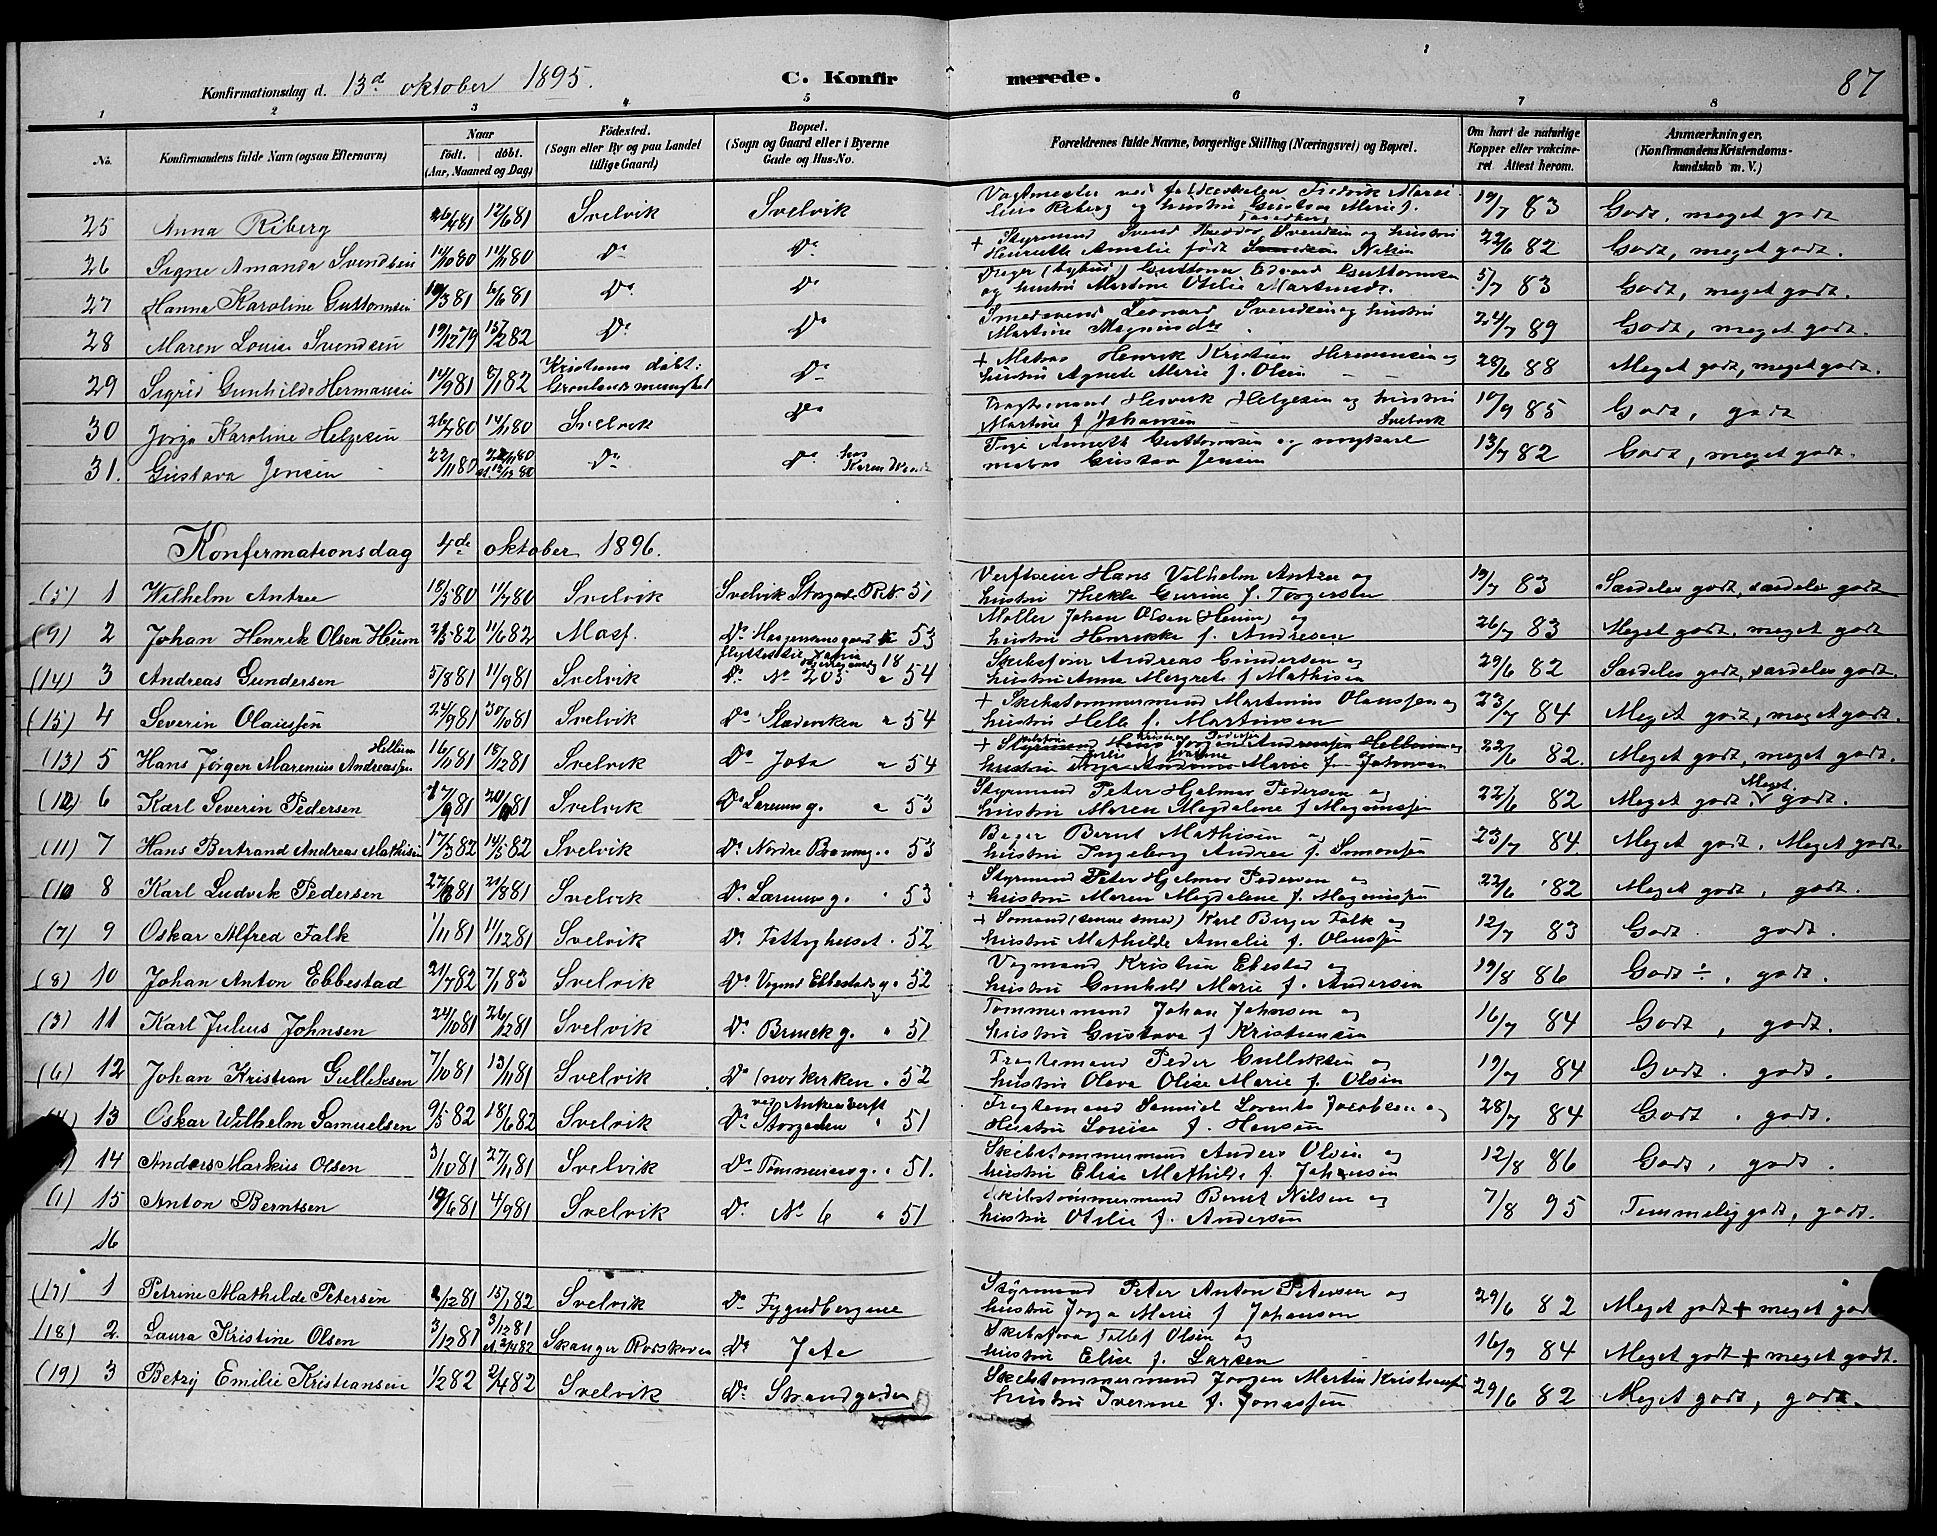 Konfirmationsdag d. 13d oktober 1895. C. Konfirmerede. 87
1 2 3 4 5 6 7 8
No. Konfirmandens fulde Navn (ogsaa Efternavn) Naar født. døbt. (Aar, Maaned og Dag) Fødested. (Sogn eller By og paa Landet tillige Gaard) Bopæl. (Sogn og Gaard eller i Byerne Gade og Hus-No. Forældrenes fulde Navne, borgerlige Stilling (Næringsvei) og Bopæl. Om havt de naturlige Kopper eller vakcineret. Attest herom. Anmærkninger. (Konfirmandens Kristendomskundskab m. V.)
25 Anna Riberg 26/4 81 12/6 81 Svelvik Svelvik Fredrik Riberg og hustru Marie f. 19/7 83 Godt, meget godt
26 Signe Amanda Svendsen 14/10 80 14/11 80 Do Do + Styrmand Svend Svendsen og hustru Henriette Amalie født 22/6 82 Godt, meget godt.
27 Hanna Karoline Guttormsen 10/3 81 6/6 81 Do Do Guttorm Edvard Guttormsen og hustru Martine Otilie 5/7 83 Godt, meget godt.
28 Maren Louise Svendsen 19/12 79 15/2 82 Do Do Smedsvend Leonard Svendsen og hustru Martine 24/7 89 Godt, meget godt.
29 Sigrid Gunhilda Hermansen 14/9 81 8/1 82 Kristiania døbt: Grønlands menighet Do + Matros Henrik Kristian Hermansen og hustru Agnete Marie f. Olsen 28/6 88 Meget godt, meget godt.
30 Jorga Karoline Helgesen 26/7 80 14/11 80 Svelvik Do Fragtemand Henrik Helgesen og hustru Martine f Johansen Svelvik 10/9 85 Godt, godt
31. Gustava Jensen 22/11 80 Do Do hos Karen Pige Anneth Guttormsen og ungkarl matros Gustav Jensen 13/7 82 Godt, meget godt.
Konfermationsdag 4de oktober 1896.
(5) 1 Wilhelm Antree 18/5 80 11/7 80 Svelvik Svelvik Storgade 51 Verftseier Hans Vilhelm Antree og hustru Thekla Gurine f. Torgersen 19/7 83 Særdeles godt, særdeles godt
(9) 2 Johan Henrik Olsen Heum 2/3 82 11/6 82 Møller Johan Olsen (Heum) og hustru Henrikke f. Andresen Do 53 26/7 83 Meget godt, meget godt
(14) 3 Andreas Gundersen 5/8 81 11/9 81 Svelvik Do No 205 " 54 Andreas Gundersen og hustru Anna Margrete f Mathisen 29/6 82 Særdeles godt, særdeles godt.
(15) 4 Severin Olaussen 24/9 81 30/10 81 Svelvik Do " 54 + Skibstømmermand Martinius Olaussen og hustru Helle f. Martinsen 23/7 84 Meget godt, meget godt.
(13) 5 Hans Jørgen Marenius Andreassen Hellum 16/6 81 18/12 81 Svelvik Do Jota " 54 + Styrmand Hans Jørgen Andreassen Hellum og hustru Marie f. Johnsen 22/6 82. Meget godt, meget godt.
(12) 6 Karl Severin Pedersen Svelvik Do " 53 Styrmand Peter Hjelmer Pedersen og hustru Maren Magdalene f Magnussen 22/6 82 Meget godt. Meget godt.
(11) 7 Hans Bertrand Andreas Mathisen 17/3 82 14/5 82 Svelvik Do Nordre " 53 Bernt Mathisen og hustru Ingeborg Andrea f. Simonsen 23/7 84 Meget godt. Meget godt.
(10 8 Karl Ludvik Pedersen 21/8 81 Svelvik Do " 53 Styrmand Peter Hjelmer Pedersen og + hustru Maren Magdalene f. Magnussen 22/6 82 Meget godt, godt.
(7) 9 Oskar Alfred Falk 1/11 81 11/12 81 Svelvik Do Fattighuset. 52 + Sømand (senere smed) Karl Berger Falk og hustru Mathilde Amalie f. Olaussen 12/7 83 Godt. godt.
(8) 10 Johan Anton Ebbestad 21/7 82 7/1 83 Svelvik Do Vognd Ebbestads g. 52 Vognmand Kristian Ebestad og hustru Gunhild Marie f. Andersen 19/8 86 Godt ÷, godt.
(3) 11 Karl Julius Johnsen 24/10 81 26/12 81 Svelvik Do Brinck g. " 51 Tømmermand Johan Johnsen og hustru Gustava f Kristiansen 16/7 84 Godt, godt.
(6) 12 Johan Kristian Gulliksen 7/10 81 13/11 81 Svelvik Do (nor kirken. 52 Fragtemand Peder Gulliksen og hustru Olava Olise Marie f. Olsen 19/7 84 Godt. godt.
13 Oskar Wilhelm Samuelsen 9/5 82 18/6 82 Svelvik Do Storgaden ved Ankers verft 51 Fragtemand Samuel Lorents Jacobsen og Hustru Louise f. Hansen 28/7 84 Godt. godt.
14 Anders Markus Olsen 3/10 81 27/11 81 Svelvik Do 51. Skibstømmermand Anders Olsen og hustru Elise Mathilde f. Johansen 12/8 86 Godt, godt.
(1) 15 Anton Berntsen 19/6 81 4/9 81 Svelvik Do No 6 " 51 Skibstømmermand Bernt Nilsen og hustru Otilie f. Andersen 7/8 95 Temmelig godt, godt.
16
(17) 1 Petrine Mathilde Petersen 15/1 82 Svelvik Do Styrmand Peter Anton Petersen og hustru Jorga Marie f Johanson 29/6 82 Meget godt + meget godt
(18) 2 Laura Kristine Olsen 3/12 81 Skauger Rørskoven Do Jota Tollef Olsen og hustru Elise f. Larsen 16/9 84 Meget godt + meget godt.
(19) 3 Betzy Emilie Kristiansen 1/2 82 2/4 82 Svelvik Do Strandgaden Skibstømmermand Jørgen Martin Kristiansen hustru Iverine f. Jonassen 29/6 82 Meget godt, godt.